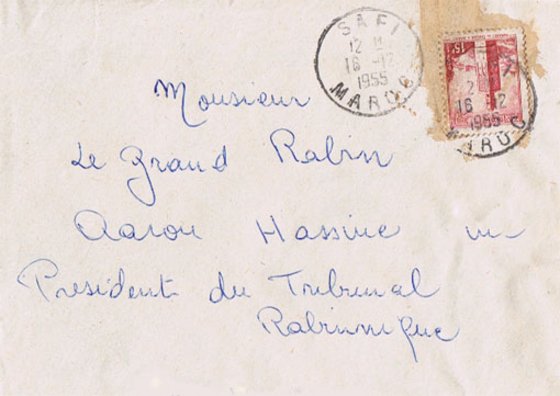 SAFI
12 H
16 -12
1955
MAROC
15F
16 12
1955
MAROC
Monsieur
Le Grand Rabin
Aaron Hassine
President du Tribunal
Rabinnique